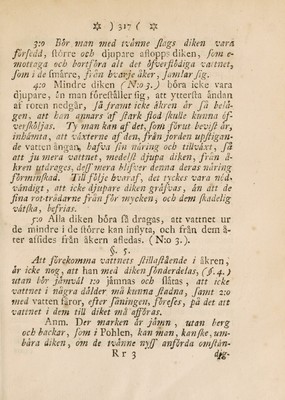 ☼ ) 317 ( ☼
3:o Bör man med tvänne slags diken vara
försedd, större och djupare aflopps diken, som e-
mottaga och bortföra alt det öfverflödiga vattnet,
som i de smärre, från hvarje åker, samlar sig.
4:o Mindre diken (N:o 3.) böra icke vara
djupare, än man föreställer sig, att yttersta ändan
af roten nedgår, så framt icke åkren är så belä-
gen, att han annars af stark flod skulle kunna öf-
versköljas. Ty man kan af det, som förut bevist är,
inhämta, att växterne af den, från jorden upstigan-
de vatten ångan, hafva sin näring och tillväxt, så
att ju mera vattnet, medelst djupa diken, från å-
kren utdrages, dess mera blifver denna deras näring
förminskad. Till följe hvaraf, det tycker vara nöd-
vändigt, att icke djupare diken gräfvas, än att de
fina rot-trådarne från för mycken, och dem skadelig
vätska, befrias.
5:o Alla diken böra så dragas, att vattnet ur
de mindre i de större kan inflyta, och från dem å-
ter afsides från åkern afledas. (N:o 3.).
§. 5.
Att förekomma vattnets stillastående i åkren,
är icke nog, att han med diken sönderdelas, (§. 4.)
utan bör jämväl 1:o jämnas och slätas, att icke
vattnet i några dälder må kunna stadna, samt 2:o
med vatten fåror, efter såningen, förses, på det att
vattnet i dem till diket må afföras.
Anm. Der marken är jämn, utan berg
och backar, som i Pohlen, kan man, kanske, um-
bära diken, om de tvänne nyss anförda omstän-
R r 3 dig-